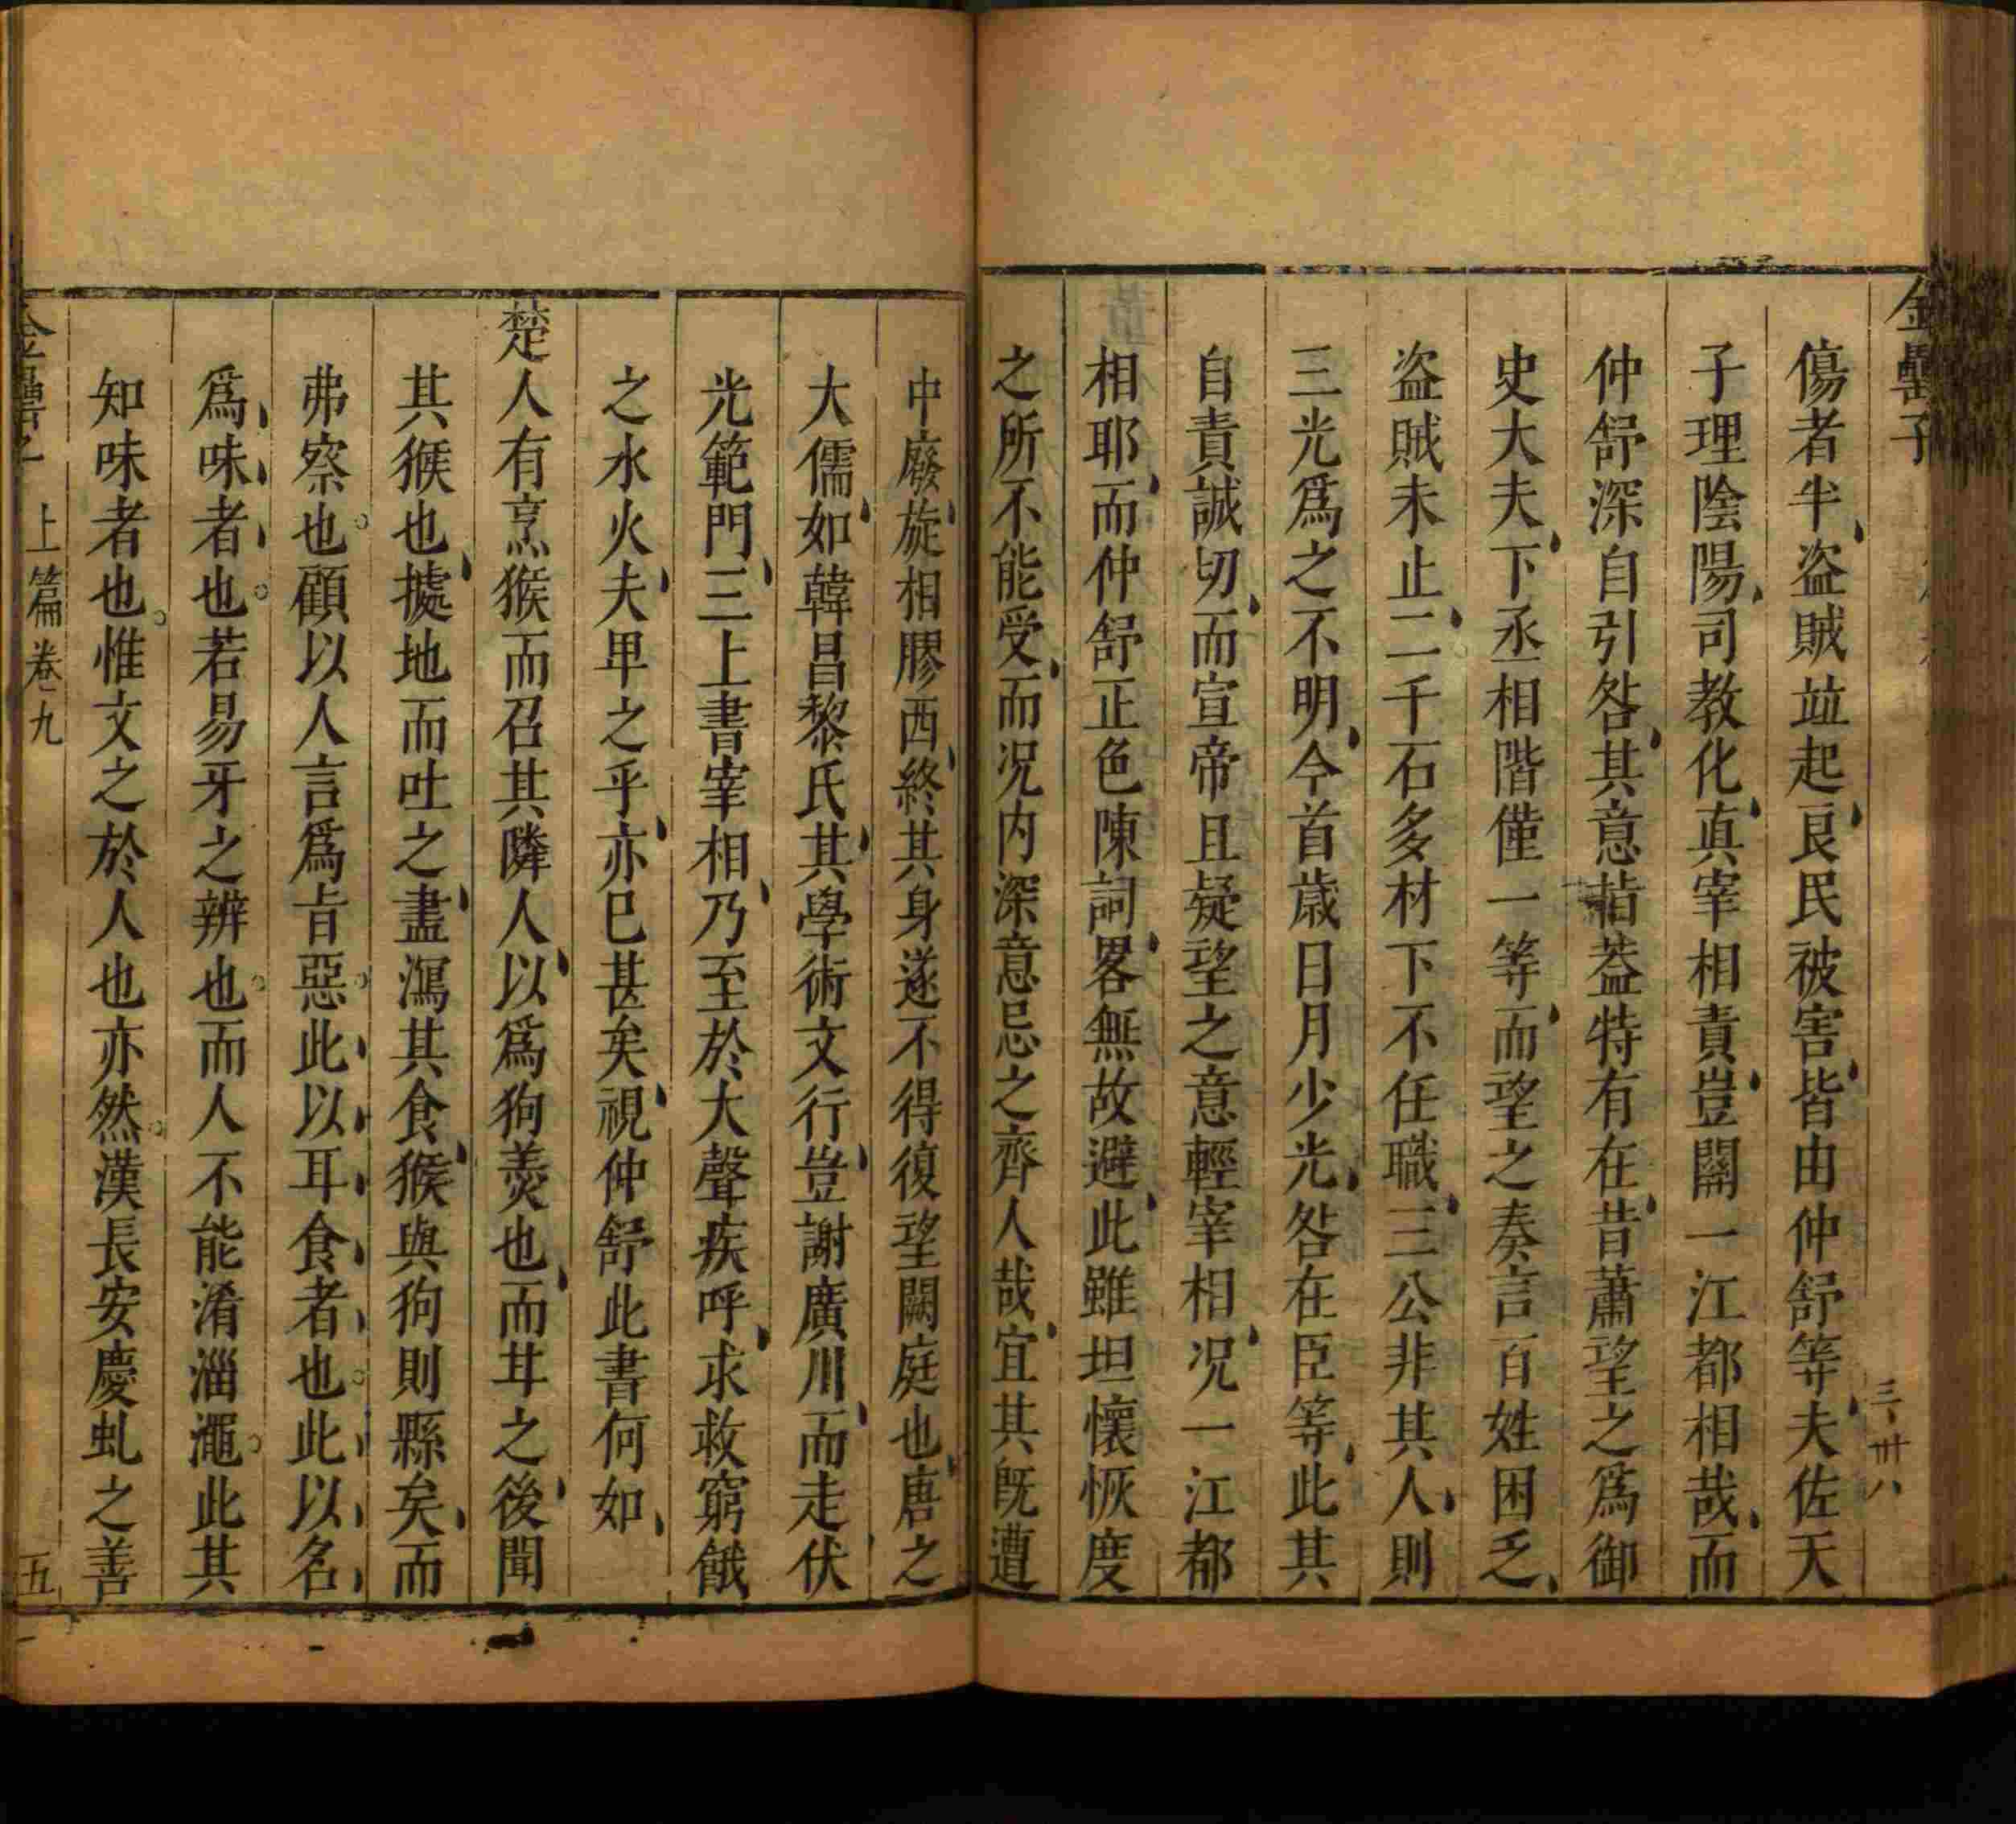 金罍子
三、卌八
傷者半盜賊竝起良民被害皆由仲舒等夫佐天
子理陰陽司教化真宰相責豈關一江都相哉而
仲舒深自引咎其意葢特有在昔蕭望之為御
史大夫下丞相階僅一等而望之奏言百姓困乏
盜賊未止二千石多材下不任職三公非其人則
三光爲之不明今首歲日月少光咎在臣等此其
自責誠切而宣帝且疑望之意輕宰相况一江都
相耶而仲舒正色陳詞畧無故避此雖坦懷恢度
之所不能受而况内深意忌之齊人哉宜其旣遭
中廢旋相膠西終其身遂不得復望闕庭也唐之
大儒如韓昌黎氏其學術文行豈謝廣川而走伏
光範門三上書宰相乃至於大聲疾呼求救窮餓
之水火夫卑之乎亦巳甚矣視仲舒此書何如
楚人有烹猴而召其隣人以爲狗羮也而甘之後聞
其猴也據地而吐之盡瀉其食猴與狗則縣矣而
弗察也顧以人言爲旨惡此以耳食者也此以名
爲味者也若易牙之辨也而人不能淆淄澠此其
知味者也惟文之於人也亦然漢長安慶虬之善
金罍子 上篇卷九 五